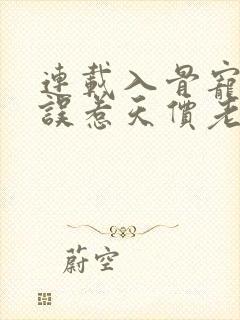 連載入骨寵
誤惹天價老
蔚空